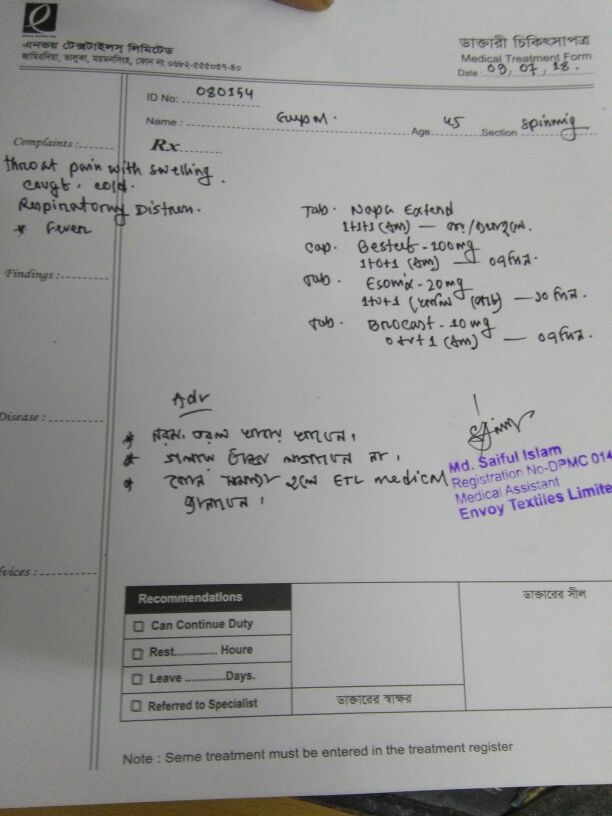 এনভয় টেক্সটাইলস্ লিমিটেড
জামিরদিয়া, ভালুকা, ময়মনসিংহ, ফোন নং ০৬৮২-৫৫৫০৩৭-৪০
ডাক্তারী চিকিৎসাপত্র
Medical Treatment Form
Date : 09/07/18.
ID No: 080154
Name : Age 45 Section Spinning
Complaints :
Rx
throat pain with swelling.
cold.
Respiratory Distress.
* Fever
Tab. Napa Extend
1+1+1 (Am) —
Cap. - 200mg
1+0+1 (Am) — ০৭ দিন.
Tab. Esomix - 20mg
1+0+1 — ১০ দিন.
Tab. Brocast - 10mg
0+0+1 (Am) — ০৭ দিন.
Findings :
Adv
Disease :
* নরম, তরল খাবার খাবেন।
* ঠান্ডা লাগাবেন না।
* কোন সমস্যা হলে ETL medical
জানাবেন।
Md. Saiful Islam
Registration No-DPMC 014
Medical Assistant
Envoy Textiles Limite
vices :
Recommendations
Can Continue Duty
Rest.............. Houre
Leave .............Days.
Referred to Specialist
ডাক্তারের স্বাক্ষর
ডাক্তারের সীল
Note : Seme treatment must be entered in the treatment register